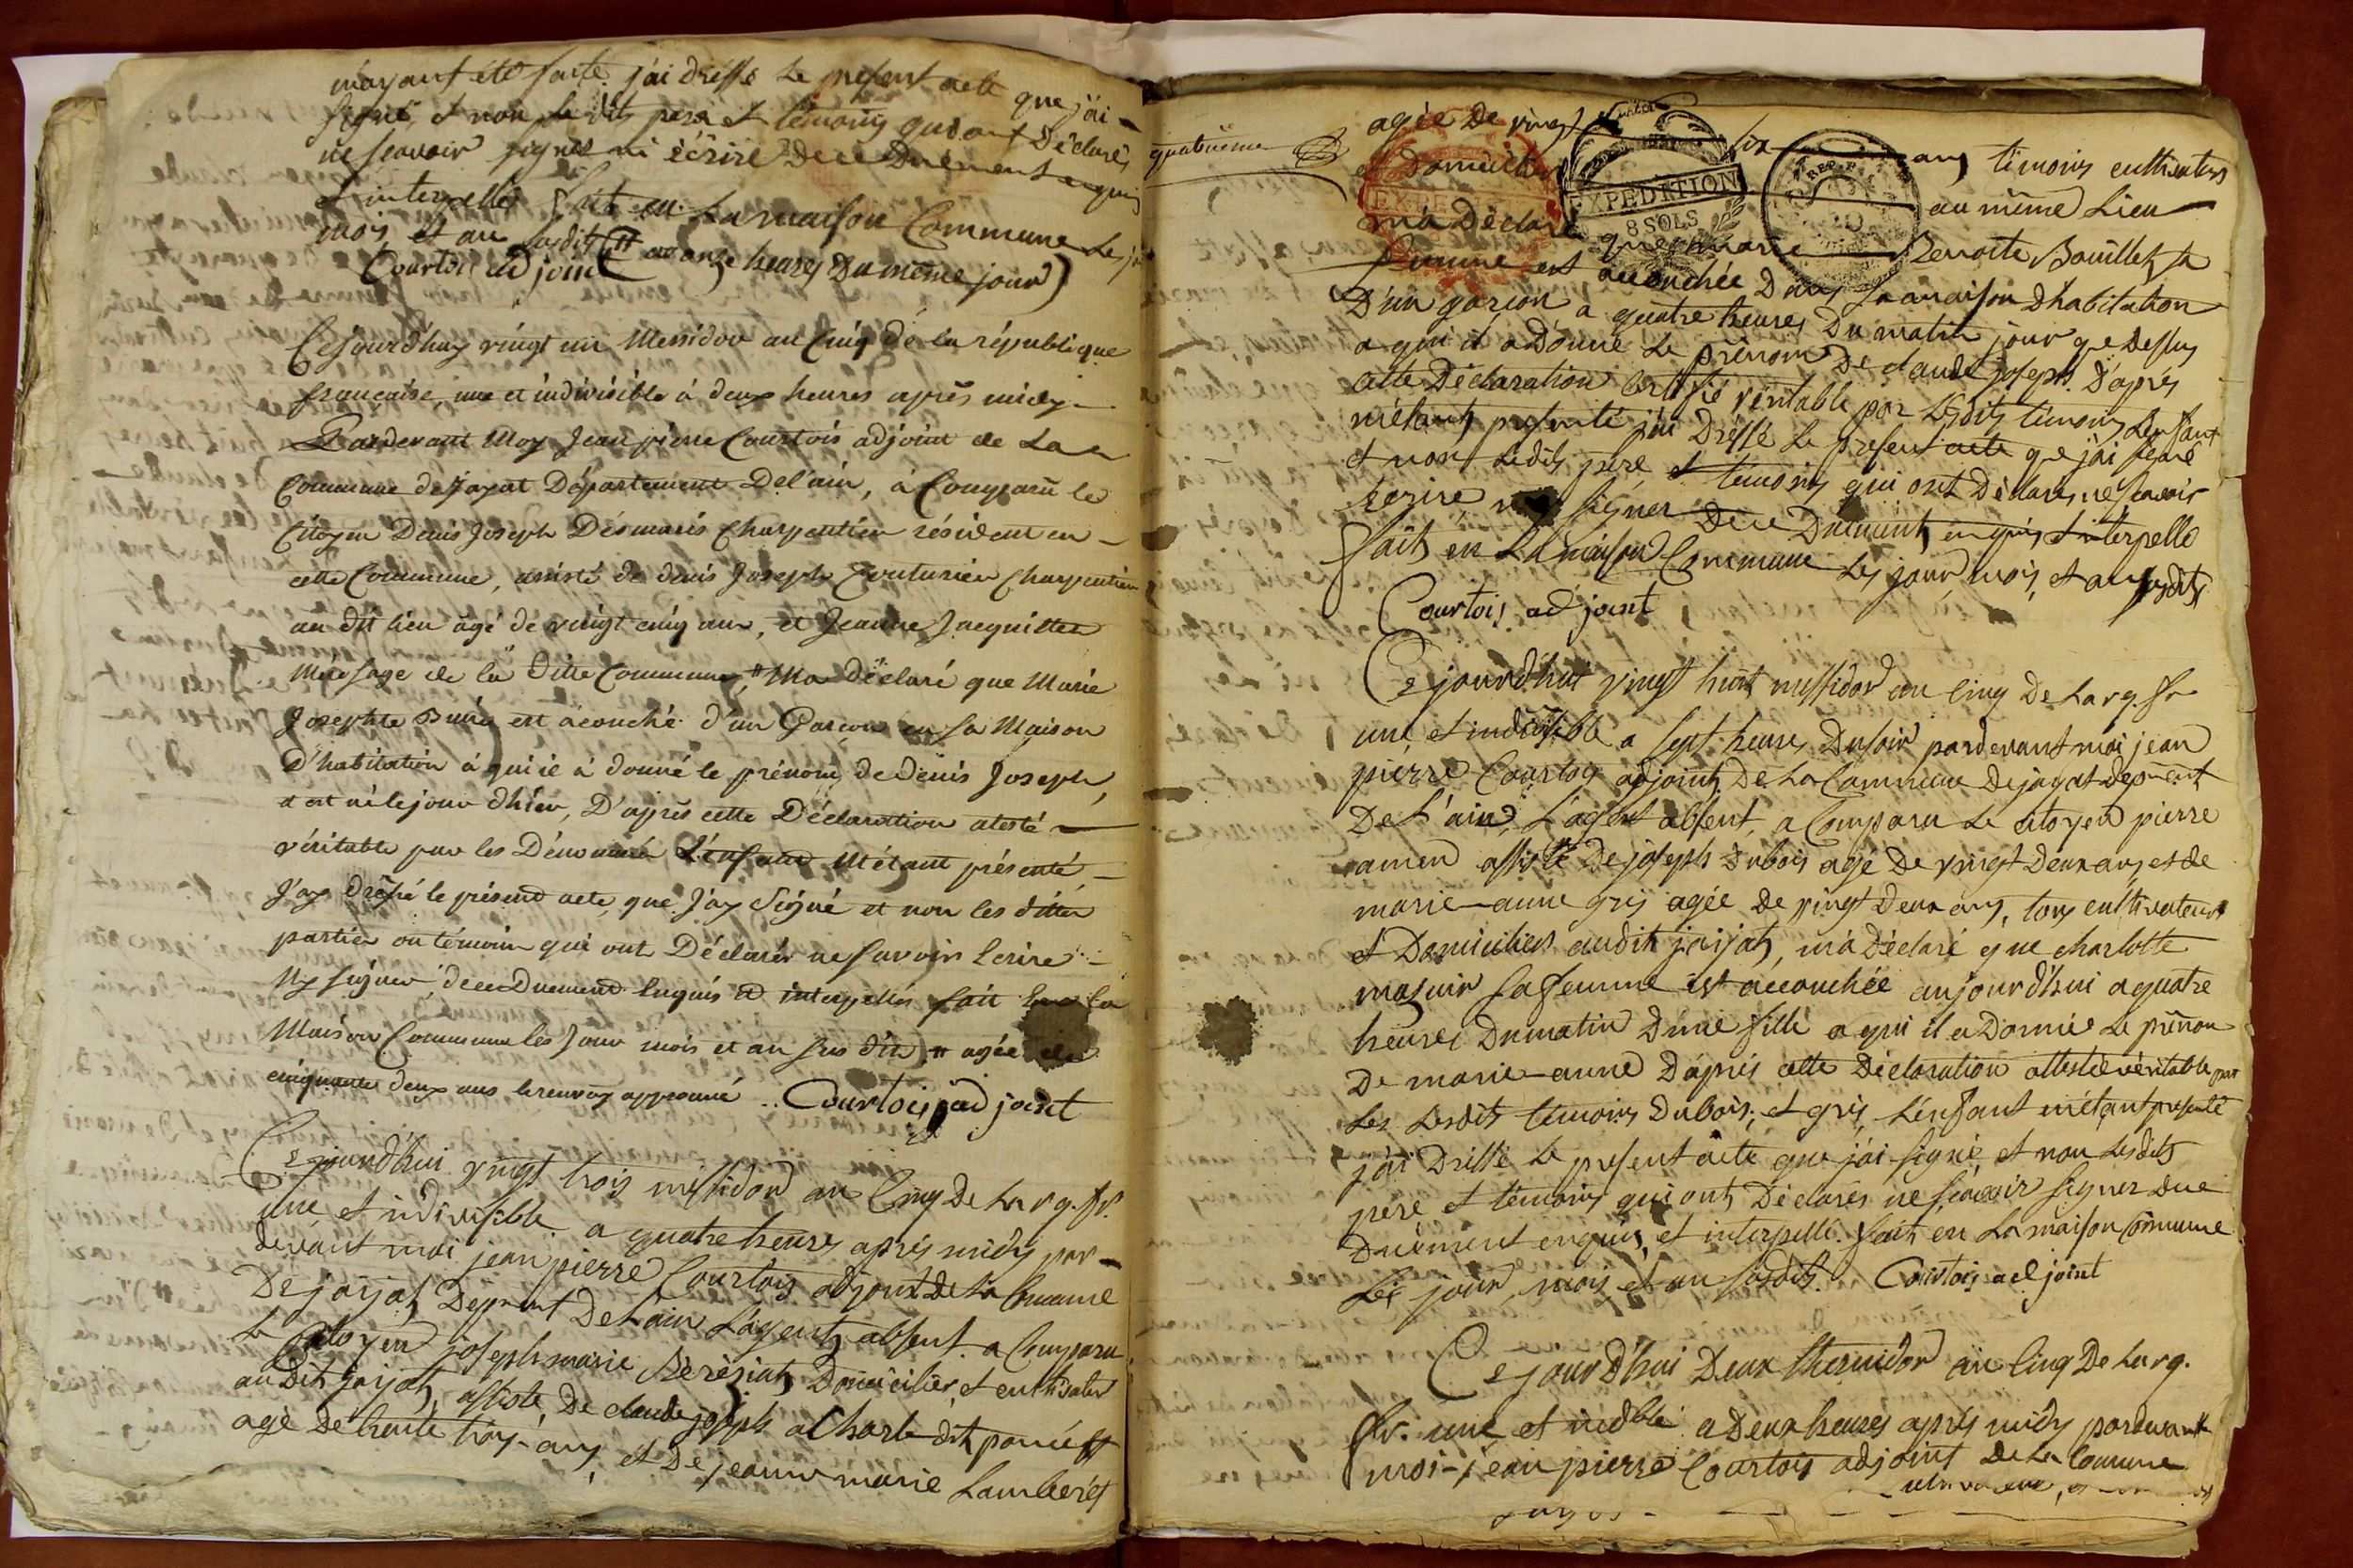 m'ayant été faite j'ai dressé le present acte que j'ai
signé, et non lesdits pere et témoins qui ont déclarés
ne scavoir signer ni écrire de ce duement enquis
et interpellés fait en la maison Commune le
mois et an susdits (# a onze heures du même jour)
Courtois adjoint
Cejourd'huy vingt un Messidor an Cinq de la république
française, une et indivisible à deux heures après midy
Pardevant Moy Jean pierre Courtois adjoint de La
Commune de Jayat Département Del'ain, à Comparu le
Citoyen Denis Joseph Désmaris Charpentier résident en
cette Commune, assisté de denis Joseph Couturier Charpentier
au dit lieu âgé de vingt cinq ans, et Jeanne Jacquillet
Mère sage de la ditte Commune, # Ma déclaré que Marie
Josephte est acouché d'un Garçon en sa Maison
D'habitation à qui il à donné le prénom de Denis Joseph,
et est né le jour d'hier, D'après cette Déclaration atesté
véritable par les Dénommés L'enfant M'étant présenté,
J'ay dressé le présent acte, que J'ay Signé et non les dittes
parties ou témoins qui ont Déclarés ne savoir Ecrire
Ny signer, de ce Duement Enquis et interpellés fait En la
Maison Commune les Jour mois et an sus dits # agée de
cinquante deux ans le renvoy approuvé .. Courtois adjoint
Cejourd'hui vingt trois messidor an Cinq De la rq. fr.
une et indivisible a quatre heures après midy par-
devant moi jean pierre Courtois adjoint De la Commune
De jaijat, Deppment De L'ain L'agent absent a Comparu
le Citoyen joseph marie Bereziat, Domicilier, et cultivateur
au Dit jaijat, assisté, De claude joseph dit
agé De trente trois ans, et De jeanne marie Lamberet
quatrieme
agée De vingt six ans temoins cultivateurs
et Domiciliés au même Lieu
EXPEDITION
8 SOLS
REP. F
m'a Déclaré que marie Benoite Bouillet sa
femme est accouchée Dans sa maison d'habitation
D'un garçon a quatre heures Du matin jour que Dessus
a qui il a Donné Le prénom De claude joseph. D'après
cette Déclaration Certifié véritable par Lesdits témoins Lenfant
m'étant presenté j'ai Dressé Le present acte que j'ai signé
et non Lesdits pere, et temoins qui ont Déclarés, ne scavoir
écrire, ny signer De ce Duement enquis et interpellé
fait en La maison Commune Les jour, mois, et an susdits
Courtois adjoint
Cejourd'hui vingt huit messidor an Cinq De La rq. fr
une, et indivisible a sept heures Du soir pardevant moi jean
pierre Courtois adjoint De La Commune De jayat depment
De L'ain, L'agent absent, a Comparu Le citoyen pierre
amen assisté De joseph Dubois agé De vingt Deux ans et de
marie-anne gris agée De vingt Deux ans, tous cultivateurs
et Domiciliés audit jaijat, m'a Déclaré que charlotte
mazuir sa femme est accouchée aujourd'hui a quatre
heures Du matin D'une fille a qui il a Donnée Le prénom
De marie-anne D'après cette Déclaration attesté véritable par
Les Lesdits témoins Dubois, et gris, L'enfant m'étant presenté
j'ai Dressé Le present acte que j'ai signé, et non Lesdits
pere et temoins qui ont Déclarés ne scavoir signer De ce
Duement enquis, et interpellé. fait en La maison Commune
Les jour, mois, et an susdits. Courtois adjoint
Cejourd'hui Deux thermidor an Cinq De La rq.
fr. une et indble a Deux heures après midy pardevant
moi-jean pierre Courtois adjoint De La Commune